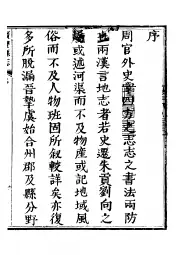 序
周官外史掌四方之志志之書法所昉
也兩漢言地志者若史遷朱貢劉向之
或述河渠而不及物產或記地域風
俗而不及人物班固所叙較詳矣亦復
多所脫漏晉摯虞始合州郡及縣分野